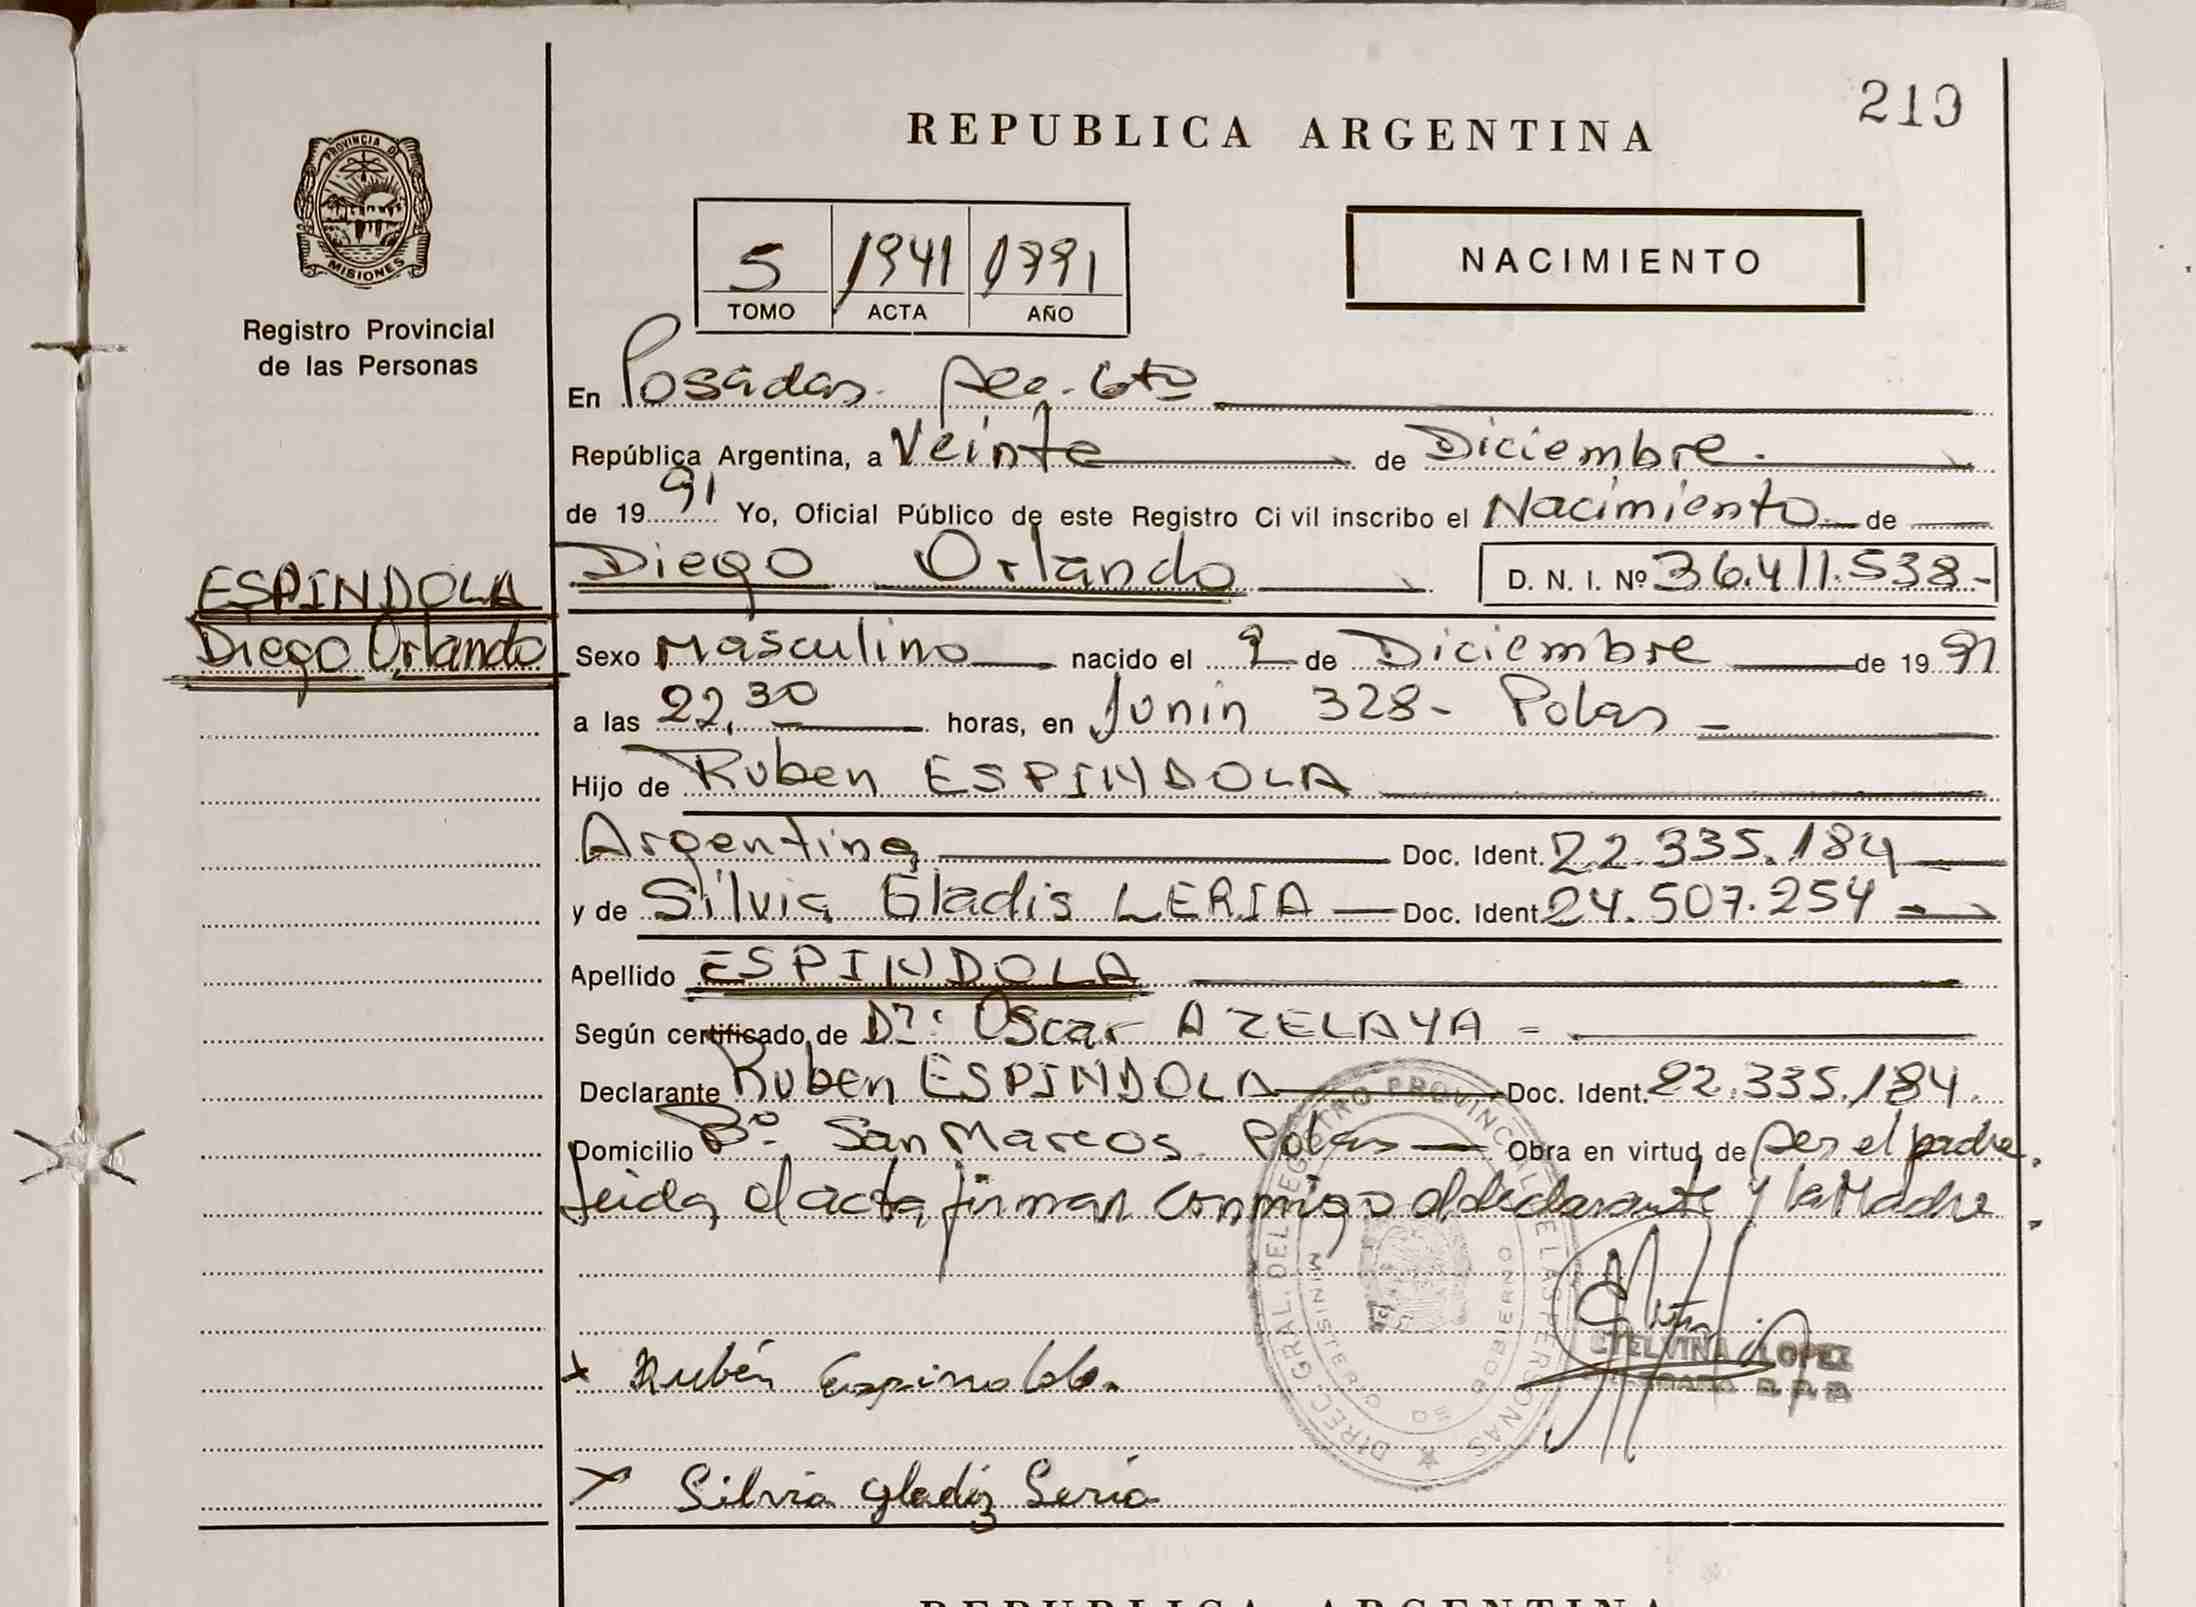 219
REPUBLICA ARGENTINA
PROVINCIA DE
MISIONES
Registro Provincial
de las Personas
5 1941 1991
TOMO ACTA AÑO
NACIMIENTO
En Posadas. Sec. 6to
República Argentina, a Veinte de Diciembre.
de 1991 Yo, Oficial Público de este Registro Ci vil inscribo el Nacimiento de
Diego Orlando D. N. I. Nº 36.411.538.-
ESPINDOLA
Diego Orlando
Sexo Masculino nacido el de Diciembre de 1991
a las 22,30 horas, en Junin 328- Pdas
Hijo de Ruben ESPINDOLA
Argentina Doc. Ident. 22.335.184
y de Silvia Gladis LERIA Doc. Ident. 24.507.254
Apellido ESPINDOLA
Según certificado de Dr: Oscar A ZELAYA -
Declarante Ruben ESPINDOLA Doc. Ident. 22.335.184.
Domicilio Bº San Marcos Pdas Obra en virtud de ser el padre.
Leida el acta firman conmigo el declarante y la Madre.
DIREC. GRAL. DEL REGISTRO PROVINCIAL DE LAS PERSONAS
MINISTERIO DE GOBIERNO
ETELVINA LOPEZ
x Rubén Espindola.
x Silvia Gladiz Leria
REPUBLICA ARGENTINA